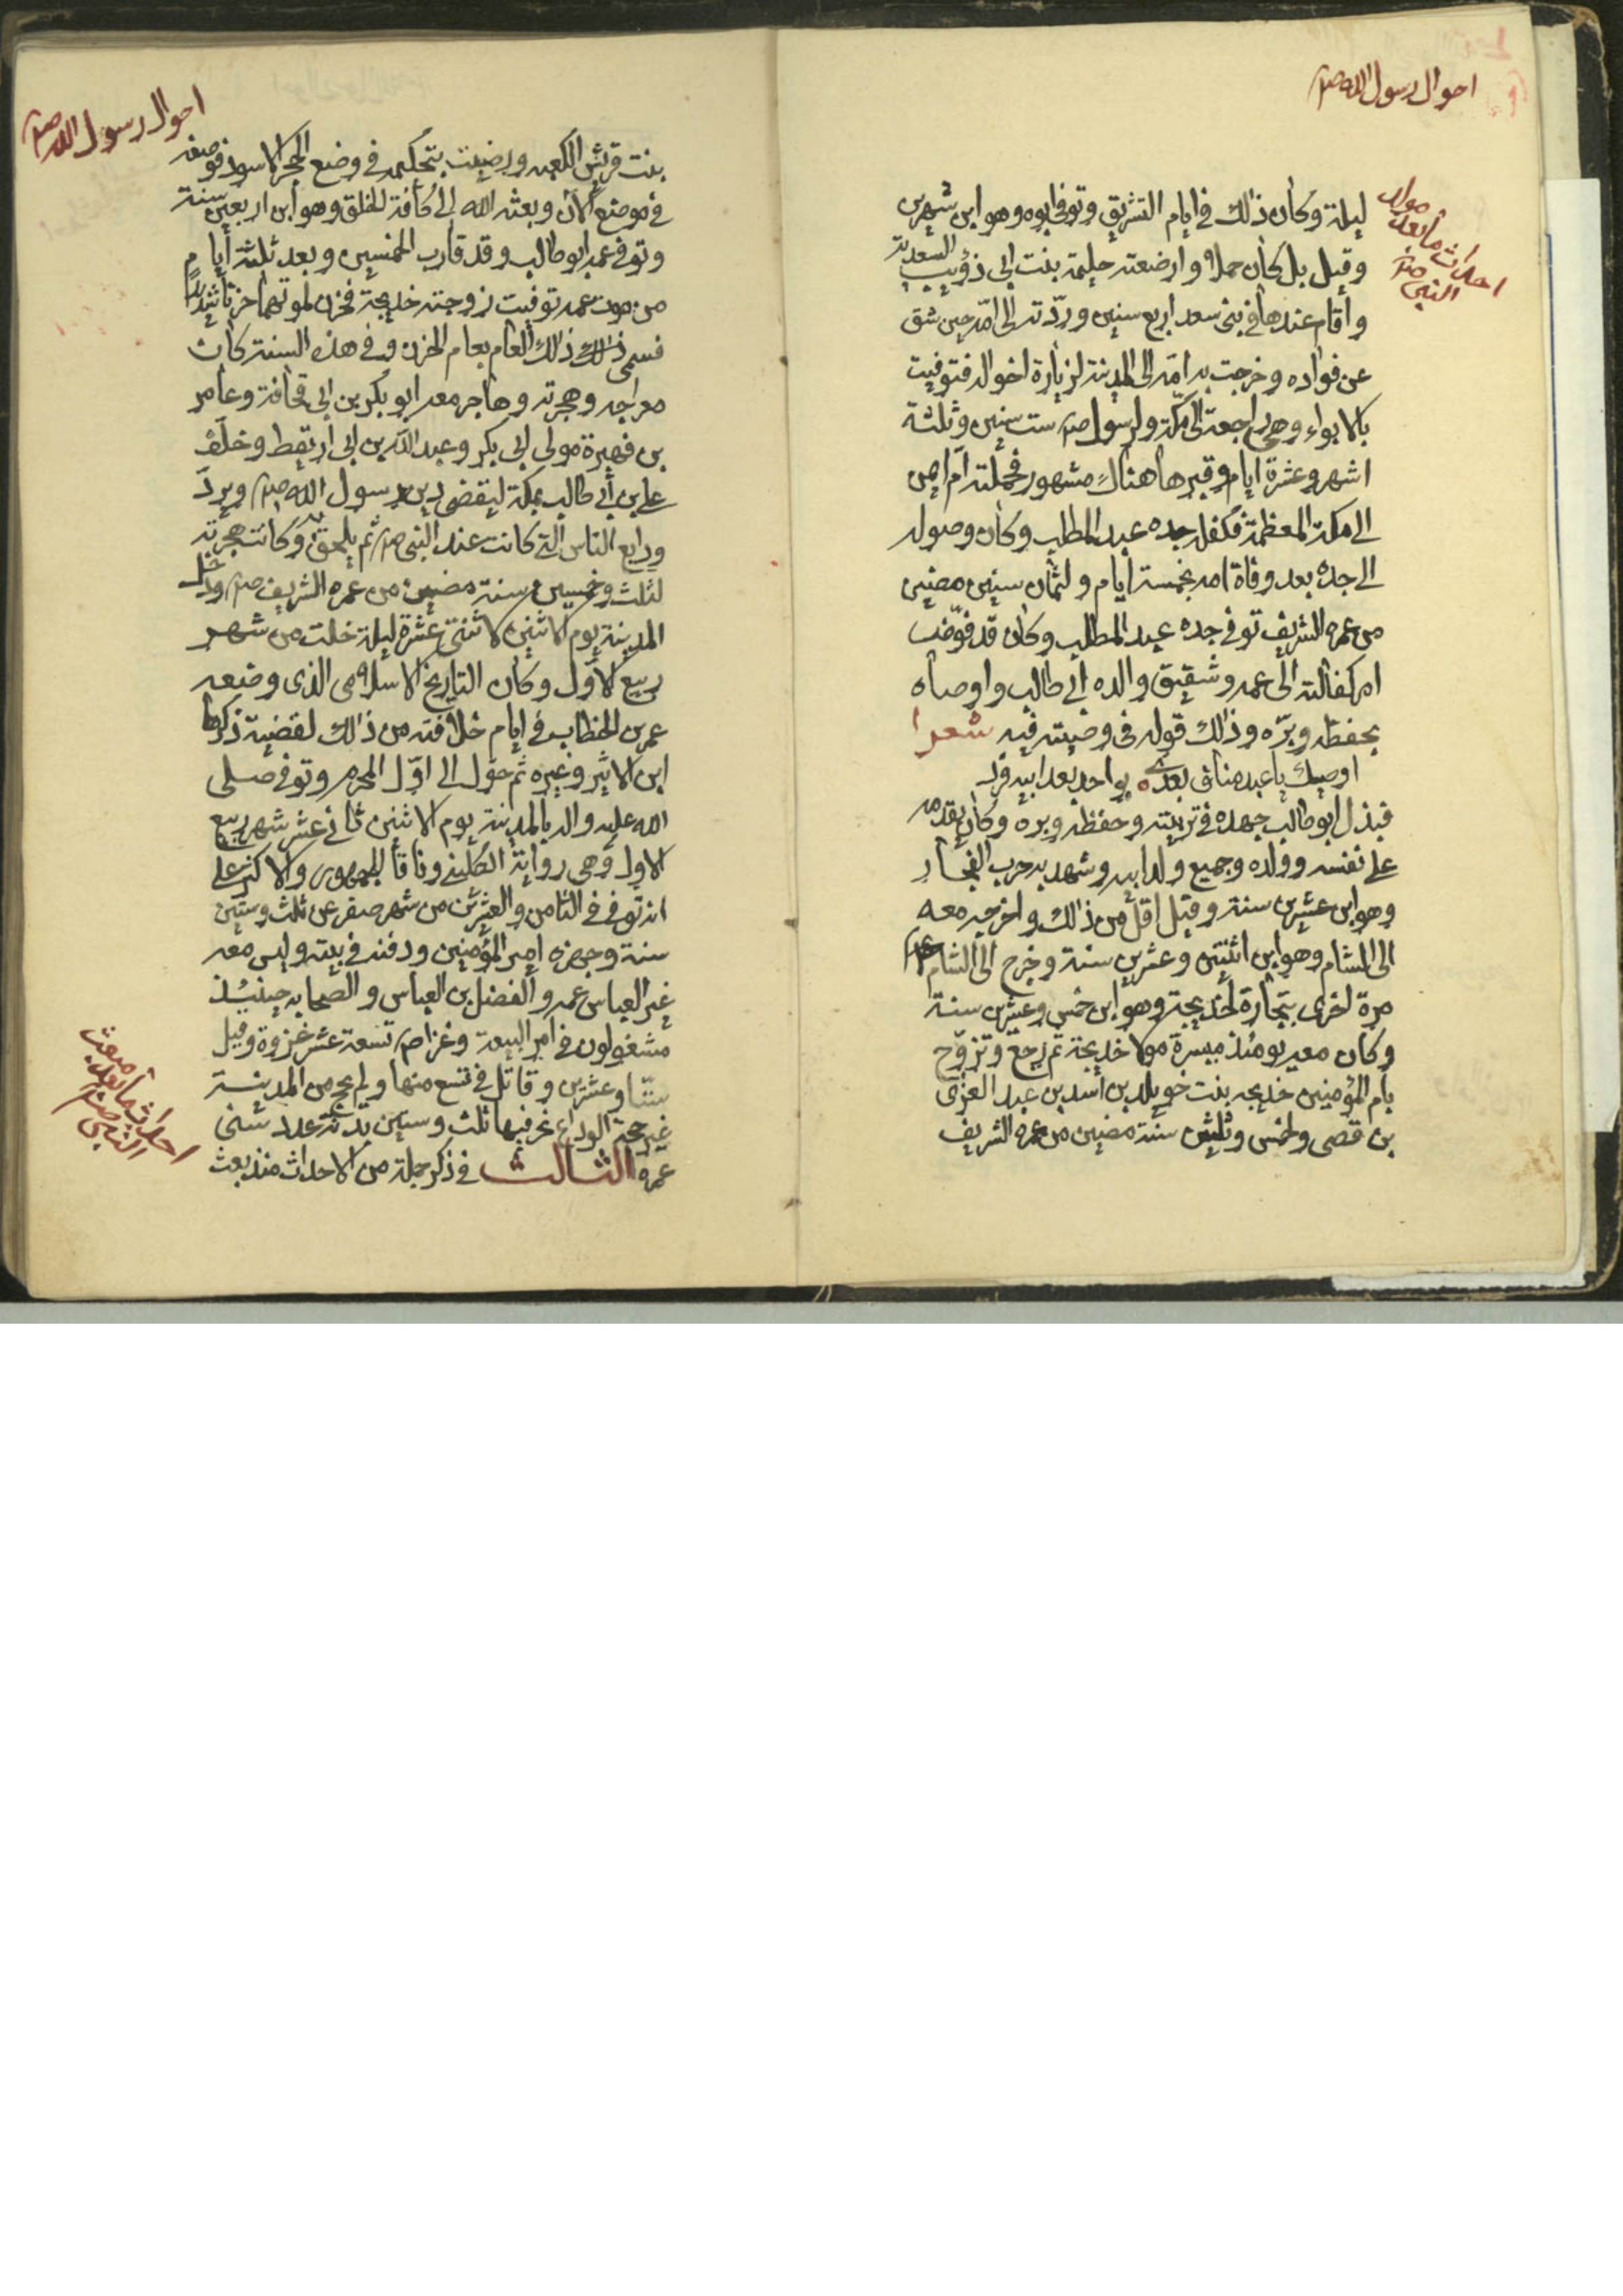 احوال رسول الله صلم
احداث ما بعد مولد
النبي صلم
ليلة وكان ذلك في ايام التشريق وتوفي ابوه وهو ابن شهرين
وقيل بل كان حملا وارضعته حليمة بنت ابي ذؤيب السعدية
واقام عندها في بني سعد اربع سنين وردّته الى امّه حين شق
عن فواده وخرجت به امّه الى المدينة لزيارة اخواله فتوفيت
بالابواء وهي راجعة الى مكّة ولرسول صلم ست سنين وثلثة
اشهر وعشرة ايام وقبرها هناك مشهور فحملته ام ايمن
الى مكة المعظمة فكفله جده عبد المطلب وكان وصوله
الى جده بعد وفاة امه بخمسة ايام ولثمان سنين مضين
من عمره الشريف توفي جده عبد المطلب وكان قد فوّض
امر كفالته الى عمه وشقيق والده ابي طالب واوصاه
بحفظه وبرّه وذلك قوله في وصيته فيه شعرا
اوصيك يا عبد مناف بعدي ه بواحد بعد ابيه فرد
فبذل ابو طالب جهده في تربيته وحفظه وبره وكان يقدمه
على نفسه وولده وجميع ولد ابيه وشهد به حرب الفجار
وهو ابن عشرين سنة وقيل اقل من ذلك واخرجه معه
الى الشام وهو ابن اثنتين وعشرين سنة وخرج الى الشام
مرة اخرى بتجارة لخديجة وهو ابن خمس وعشرين سنة
وكان معه يومئذ ميسرة مولا خديجة ثم رجع وتزوّج
بام المؤمنين خديجه بنت خويلد بن اسد بن عبد العزى
بن قصى ولخمس وثلثين سنة مضين من عمره الشريف
احوال رسول الله صلم
بنت قريش الكعبه ورضيت بتحكيمه في وضع الحجر الاسود فوضعه
في موضع الان وبعثه الله الى كافة الخلق وهو ابن اربعين سنة
وتوفي عمه ابو طالب وقد قارب الخمسين وبعد ثلثة ايام
من موت عمه توفيت زوجته خديجة فحزن لموتهما حزنا شديدا
فسمى ذلك ذلك العام بعام الحزن وفي هذه السنة كان
معراجه وهجرته وهاجر معه ابو بكر بن ابي قحافة وعامر
بن فهيرة مولى ابي بكر وعبد الله بن ابي اريقط وخلّف
علي بن ابي طالب بمكة ليقضي دين رسول الله صلم ويردّ
ودايع الناس التي كانت عند النبي صلم ثم يلحق به وكانت هجرته
لثلث وخمسين سنة مضين من عمره الشريف صلم ودخل
المدينة يوم الاثنين لاثنتي عشرة ليلة خلت من شهر
ربيع الاول وكان التاريخ الاسلامي الذي وضعه
عمر بن الخطاب في ايام خلافته من ذلك لقضية ذكرها
ابن الاثير وغيره ثم حوّل الى اوّل المحرم وتوفي صلى
الله عليه واله بالمدينة يوم الاثنين ثاني عشر شهر ربيع
الاول وهي رواية الكليني وفاقا للجمهور والاكثر على
انه توفي في الثامن والعشرين من شهر صفر عن ثلث وستين
سنة وجهزه امير المؤمنين ودفنه في بيته وليس معه
غير العباس عمه والفضل بن العباس والصحابه حينئذ
مشغولون في امر البيعة وغزا صلم تسعة عشر غزوة وقيل
ستّا وعشرين وقاتل في تسع منها ولم يحج من المدينة
غير حجة الوداع نحر فيها ثلث وستين بدنة عدد سني
عمره الثالث في ذكر جملة من الاحداث منذ بعث
احداث ما بعد مبعث
النبي صلم